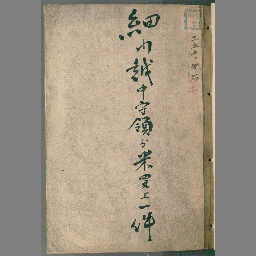 細川越中守領分米買上一件